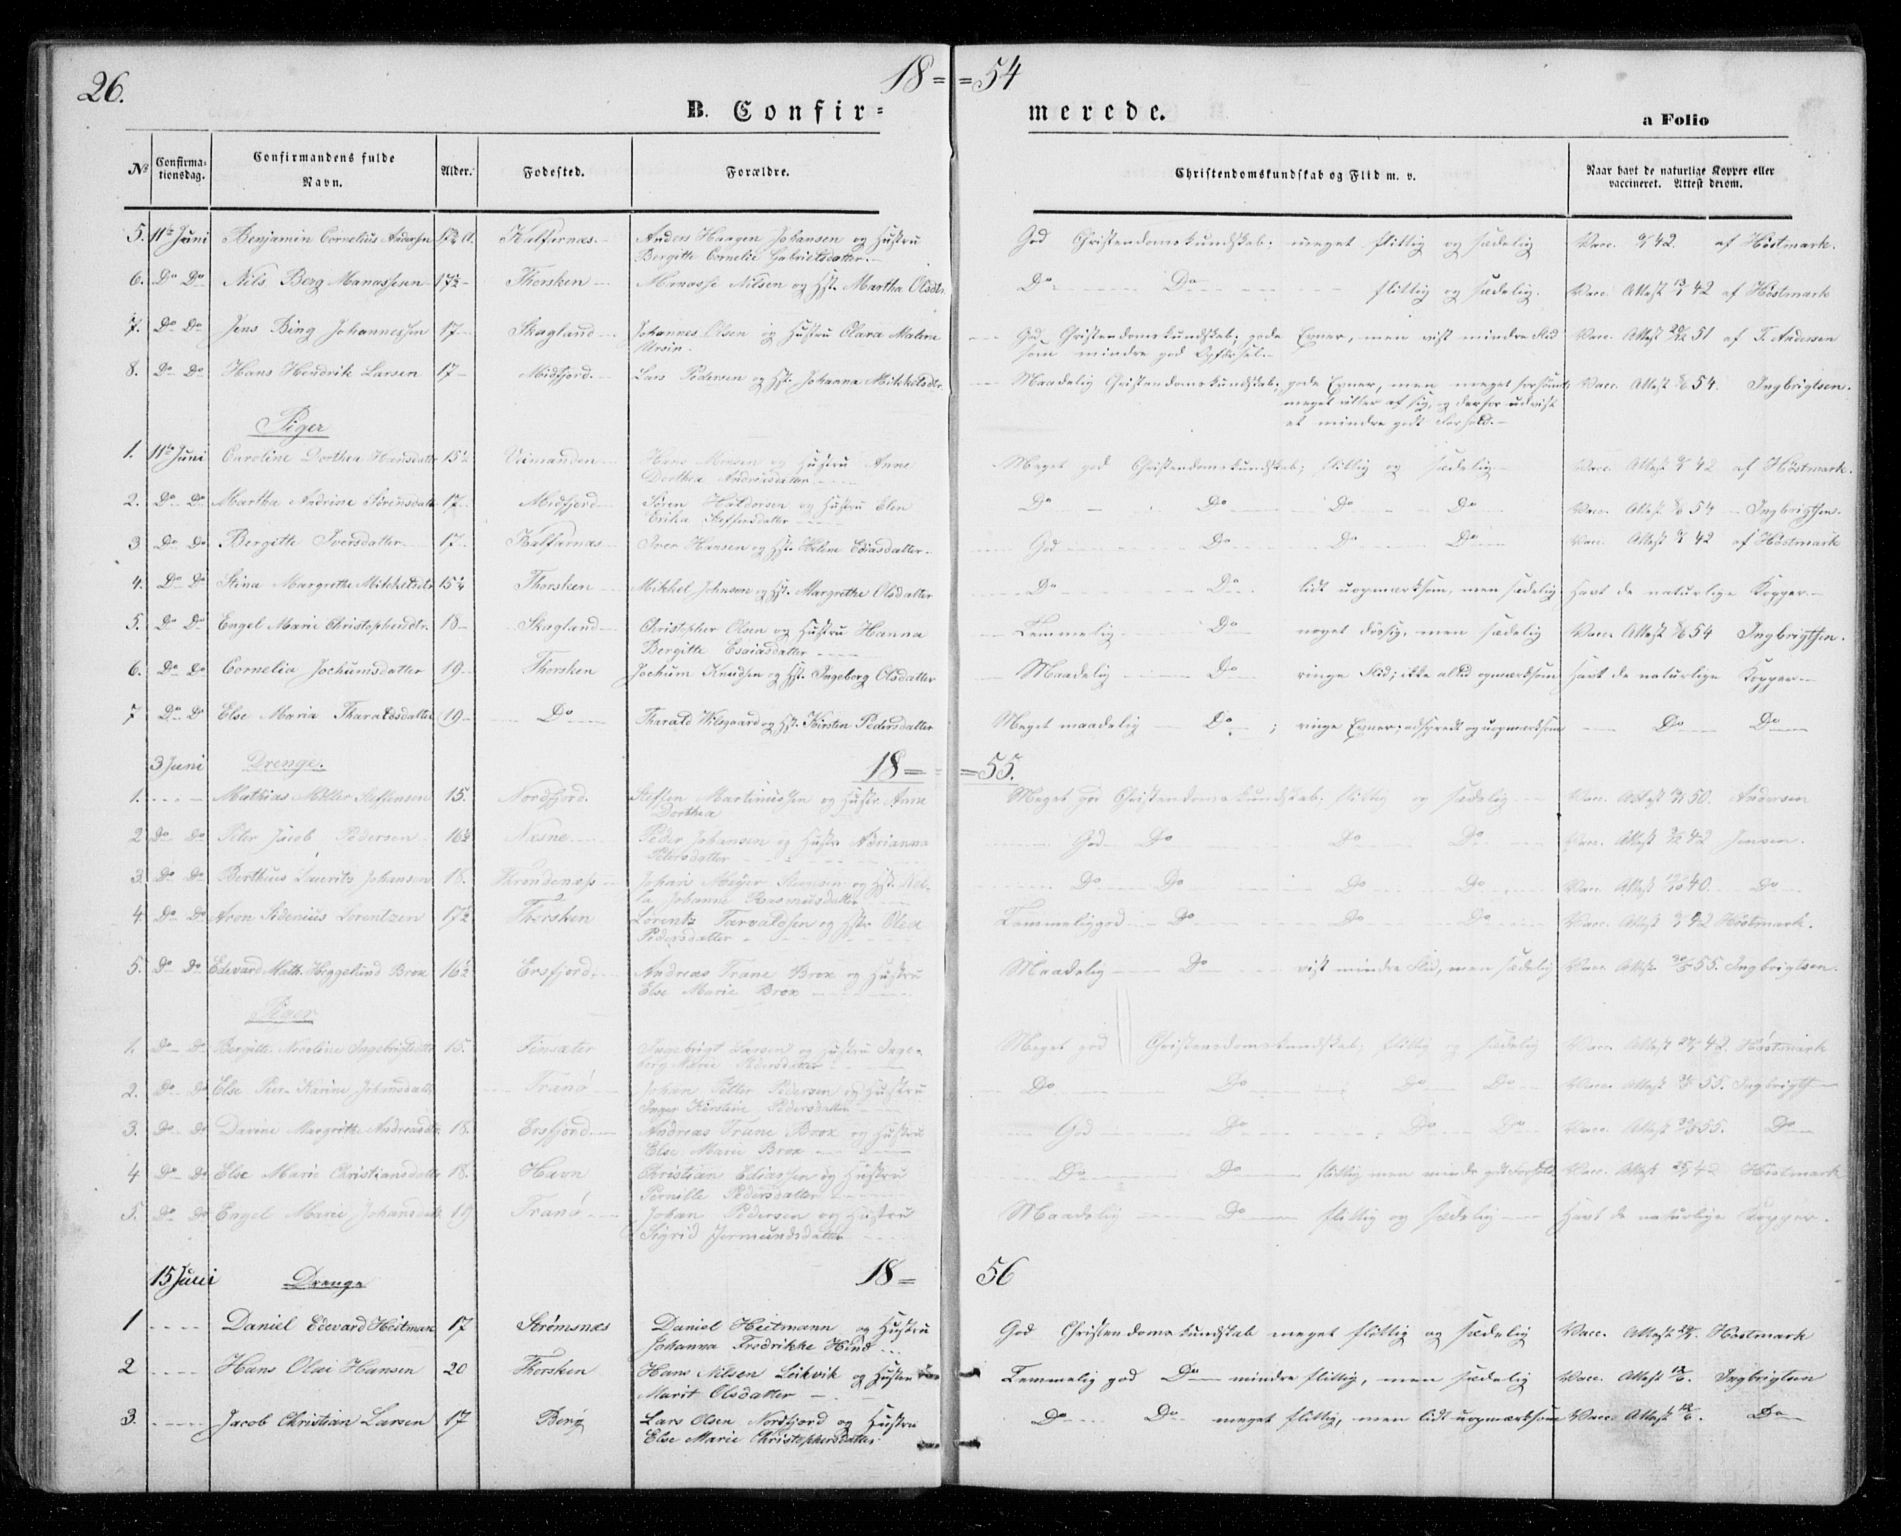 26.
18 = = 54
B. Confir= merede.
a Folio
No Confirmationsdag. Confirmandens fulde Navn. Alder. Fødested. Forældre. Christendomskundskab og Flid m. v. Naar havt de naturlige Kopper eller vaccineret. Attest derom.
5. 11te Juni Benjamin Cornelius Andersen Kalfarnæs. Anders Haagen Johansen og Hustru God Christendomskundskab; meget flittig og sædelig Vacc. 42. af Høstmark.
Bergitte Cornelie Gabrielsdatter.
6. Do Do Nils Berg Manassesen 17½ Thorsken Manasse Nilsen og Hst. Martha Olsdtr. Do Do flittig og sædelig. Vacc. Attest 42 af Høstmark
7. Do Do Jens Bing Johannessen 17 Skagland Johannes Olsen og Hustru Olava Malene God Christendomskundskab; gode Evner, men vist mindre Flid Vacc. Attest 51 af T. Andersen
Ursin. som mindre god Opførsel.
8. Do Do Hans Hendrik Larsen 17 Midfjord. Lars Pedersen og Hst. Johanna Mikkelsdtr. Maadelig Christendomskundskab; gode Evner, men meget forsømt; Vacc. Attest 54. Ingbrigtsen.
meget efter af sig, og derfor udvist
et mindre godt Forhold.
Piger
1. 11te Juni Caroline Dorthea Hansdatter 15½ Veimanden Hans Monsen og Hustru Anne Meget god Christendomskundskab; flittig og sædelig Vacc. Attest 42 af Høstmark.
Dorthea Andreasdatter
2. Do Do Martha Andrine Sørensdatter 17 Midfjord Søren Haldorsen og Hustru Elen Do Do Do Do Vacc. Attest 54 Ingbrigtsen.
Erika Steffensdatter
3 Do Do Bergitte Iversdatter 17 Kalfarnæs Iver Hansen og Hst. Helene Esiasdatter. God Do Do Do Vacc. Attest 42 af Høstmark
4. Do Do Stina Margrethe Mikkelsdtr. 15¼ Thorsken Mikkel Johnsen og Hst. Margrethe Olsdatter Do Do lidt uopmærksom, men sædelig Havt de naturlige Kopper
5. Do Do Engel Marie Christophersdtr. 18 Skagland Christopher Olsen og Hustru Hanna Temmelig Do noget døsig, men sædelig Vacc. Attest 54 Ingbrigtsen.
Bergitte Esaiasdatter
6. Do Do Cornelia Jochumsdatter 19 Thorsken Jochum Knudsen og Hst. Ingeborg Olsdatter Maadelig Do ringe Flid; ikke altid opmærksom Havt de naturlige Kopper
7 Do Do Else Maria Tharaldsdatter 19 Do Tharald Wilsgaard og Hst. Kirsten Pedersdatter Meget maadelig Do; ringe Evner; adspredt og uopmærksom Do Do
3 Juni Drenge. 18 = = 55.
1. Mathias Møller Steffensen 15. Nordfjord. Steffen Martinussen og Hustr. Anne Meget god Christendomskundskab; flittig og sædelig Vacc. Attest 50. Andersen
Dorthea
2 Do Do Peter Jacob Pedersen 16½ Næsne Peder Johansen og Hustr. Adrianna God Do Do Do Vacc. Attest 42 Jensen.
Petersdatter
3. Do Do Berthus Laurits Johansen 18. Throndenæss Johan Meyer og Hst. Do Do Do Do Vacc. Attest 40. Do
Johanne Rasmusdatter
4 Do Do Aron Sidenius Lorentzen 17½ Thorsken Lorentz Tarvaldsen og Hstr Olea Temmelig god Do Do Do Vacc. Attest 42 Høstmark.
Pedersdatter
5. Do Do Edevard Meth. Heggelund Brox 16½ Ersfjord Andreas Trane Brox og Hustru Maadelig Do vist mindre Flid, men sædelig Vacc. Attest 55. Ingbrigtsen.
Else Marie Brox
Piger
1. Do Do Bergitte Nicoline Ingebrigtsdatter 15. Finsæter Ingebrigt Larsen og Hustru Inge- Meget god Christendomskundskab; flittig og sædelig Vacc. Attest 42. Høstmark
borg Marie Pedersdatter
2. Do Do Else Karine Johansdatter Tranø Johan Petter Pedersen og Hustru Do Do Do Do Vacc. Attest 55. Ingbrigtsen
Inger Kirstine Pedersdatter
3. Do Do Davine Margrethe Andreasdtr. 18. Ersfjord Andreas Trane Brox og Hustru God Do Do Do Vacc. Attest 55. Do
Else Marie Brox
4 Do Do Else Marie Christiansdatter 18. Havn Christian Eliassen og Hustru Do Do flittig, men mindre godt Forhold Vacc. Attest 42 Høstmark
Pernille Pedersdatter
5. Do Do Engel Marie Johansdatter 19 Tranø Johan Pedersen og Hustru Maadelig Do flittig og sædelig Havt de naturlige Kopper.
Sigrid Jermundsdatter
15 Juni Drenge 18 = 56
1 Daniel Edevard Heitman 17 Strømsnæs Daniel Heitmann og Hustru God Christendomskundskab meget flittig og sædelig Vacc. Attest Høstmark
Johanna Fredrikke Hind
2 Hans Olai Hansen 20 Thorsken Hans Nilsen Leikvik og Hustru Temmelig god Do mindre flittig, men sædelig Vacc. Attest Ingbrigtsen
Marit Olsdatter
3. Jacob Christian Larsen 17 Berg Lars Olsen Nordfjord og Hustru Do Do meget flittig, men lidt uopmærksom Vacc. Attest Do
Else Marie Christophersdatter